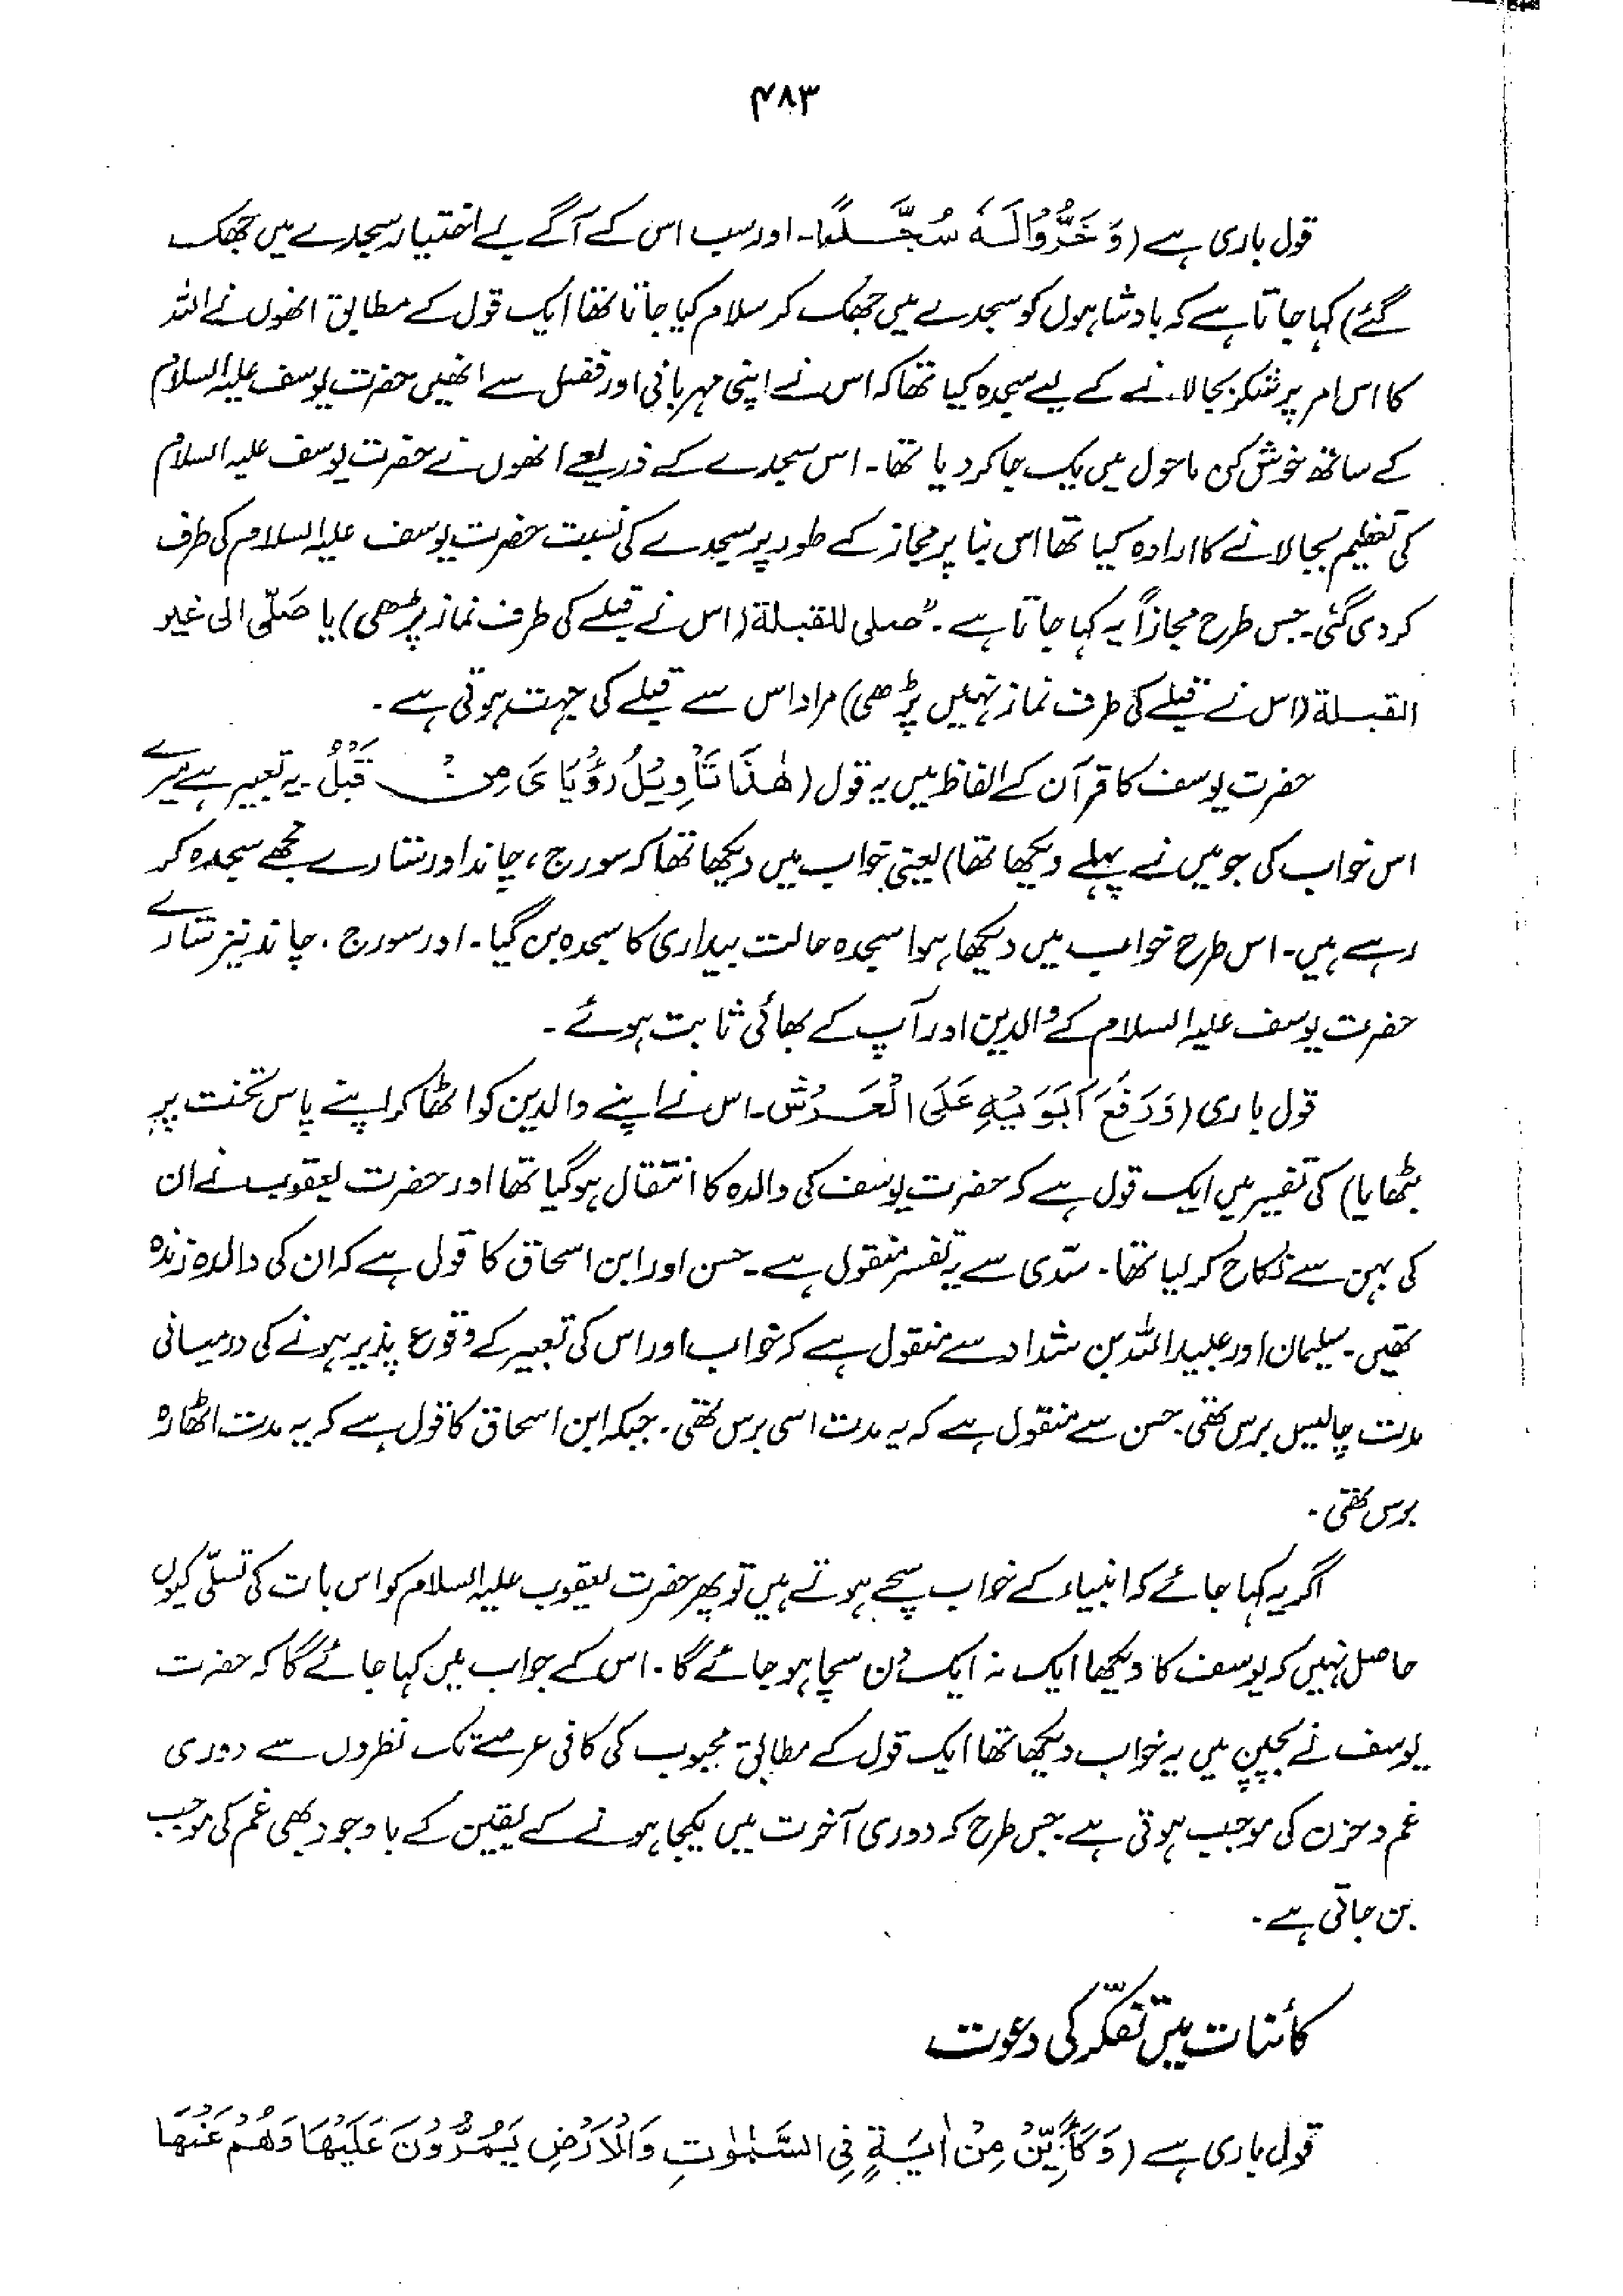 ۴۸۳
قول باری ہے (وَخَرُّوْا لَہٗ سُجَّدًا۔ اور سب اس کے آگے بے اختیار سجدے میں جھک
گئے) کہا جاتا ہے کہ بادشاہوں کو سجدے میں جھک کر سلام کیا جاتا تھا ایک قول کے مطابق انھوں نے اللہ
کا اس امر پر شکر بجا لانے کے لیے سجدہ کیا تھا کہ اس نے اپنی مہربانی اور فضل سے انھیں حضرت یوسف علیہ السلام
کے ساتھ خوش کن ماحول میں یک جا کر دیا تھا۔ اس سجدے کے ذریعے انھوں نے حضرت یوسف علیہ السلام
کی تعظیم بجا لانے کا ارادہ کیا تھا اس بنا پر مجاز کے طور پر سجدے کی نسبت حضرت یوسف علیہ السلام کی طرف
کر دی گئی۔ جس طرح مجازاً یہ کہا جاتا ہے۔ "صلی للقبلة (اس نے قبلے کی طرف نماز پڑھی) یا صَلّٰی الی غیر
القبلة (اس نے قبلے کی طرف نماز نہیں پڑھی) مراد اس سے قبلے کی جہت ہوتی ہے۔
حضرت یوسف کا قرآن کے الفاظ میں یہ قول (ھٰذَا تَأْوِیْلُ رُؤْیَایَ مِنْ قَبْلُ۔ یہ تعبیر ہے میرے
اس خواب کی جو میں نے پہلے دیکھا تھا) یعنی خواب میں دیکھا تھا کہ سورج، چاند اور ستارے مجھے سجدہ کر
رہے ہیں۔ اس طرح خواب میں دیکھا ہوا سجدہ حالت بیداری کا سجدہ بن گیا۔ اور سورج، چاند نیز ستارے
حضرت یوسف علیہ السلام کے والدین اور آپ کے بھائی ثابت ہوئے۔
قول باری (وَرَفَعَ اَبَوَیْہِ عَلَی الْعَرْشِ۔ اس نے اپنے والدین کو اٹھا کر اپنے پاس تخت پر
بٹھایا) کی تفسیر میں ایک قول ہے کہ حضرت یوسف کی والدہ کا انتقال ہو گیا تھا اور حضرت یعقوب نے ان
کی بہن سے نکاح کر لیا تھا۔ سّدی سے یہ تفسیر منقول ہے۔ حسن اور ابن اسحاق کا قول ہے کہ ان کی والدہ زندہ
تھیں۔ سلیمان اور عبید اللہ بن شداد سے منقول ہے کہ خواب اور اس کی تعبیر کے وقوع پذیر ہونے کی درمیانی
مدت چالیس برس تھی۔ حسن سے منقول ہے کہ یہ مدت اسی برس تھی۔ جبکہ ابن اسحاق کا قول ہے کہ یہ مدت اٹھارہ
برس تھی۔
اگر یہ کہا جائے کہ انبیاء کے خواب سچے ہوتے ہیں تو پھر حضرت یعقوب علیہ السلام کو اس بات کی تسلّی کیوں
حاصل نہیں کہ یوسف کا دیکھا ایک نہ ایک دن سچا ہو جائے گا۔ اس کے جواب میں کہا جائے گا کہ حضرت
یوسف نے بچپن میں یہ خواب دیکھا تھا ایک قول کے مطابق محبوب کی کافی عرصے تک نظروں سے دوری
غم و حزن کی موجب ہوتی ہے۔ جس طرح کہ دوری آخرت میں یکجا ہونے کے یقین کے باوجود بھی غم کی موجب
بن جاتی ہے۔
کائنات میں تفکّر کی دعوت
قول باری ہے (وَکَاَیِّنْ مِنْ اٰیَةٍ فِی السَّمٰوٰتِ وَالْاَرْضِ یَمُرُّوْنَ عَلَیْھَا وَھُمْ عَنْھَا